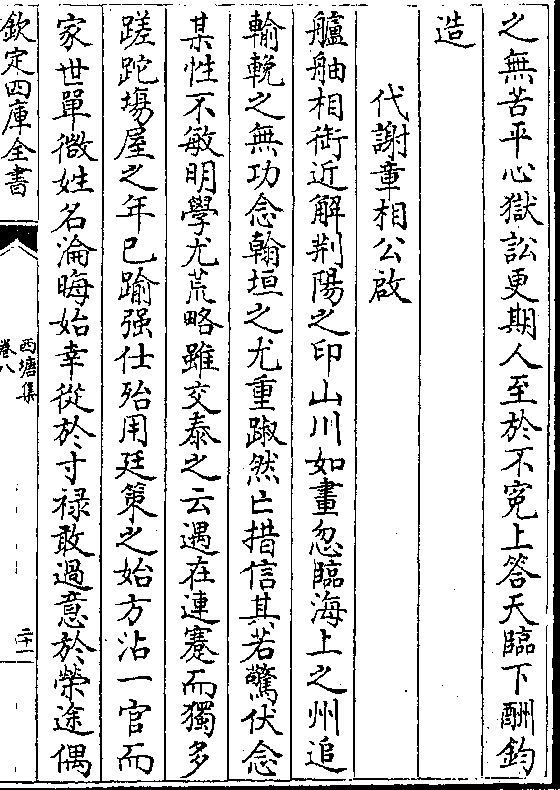 之無苦平心獄訟更期人至於不寃上答天臨下酬鈞
造
代謝童相公啟
艫舳相銜近解荆陽之印山川如畫忽臨海上之州追
輸輓之無功念翰垣之尤重踧然亡措信其若驚伏念
某性不敏明學尤荒略雖交泰之云遇在連蹇而獨多
蹉跎塲屋之年已踰强仕殆用廷策之始方沾一官而
家世單微姓名淪晦始幸從於寸禄敢過意於榮途偶
欽定四庫全書
西塘集
卷八
二十一